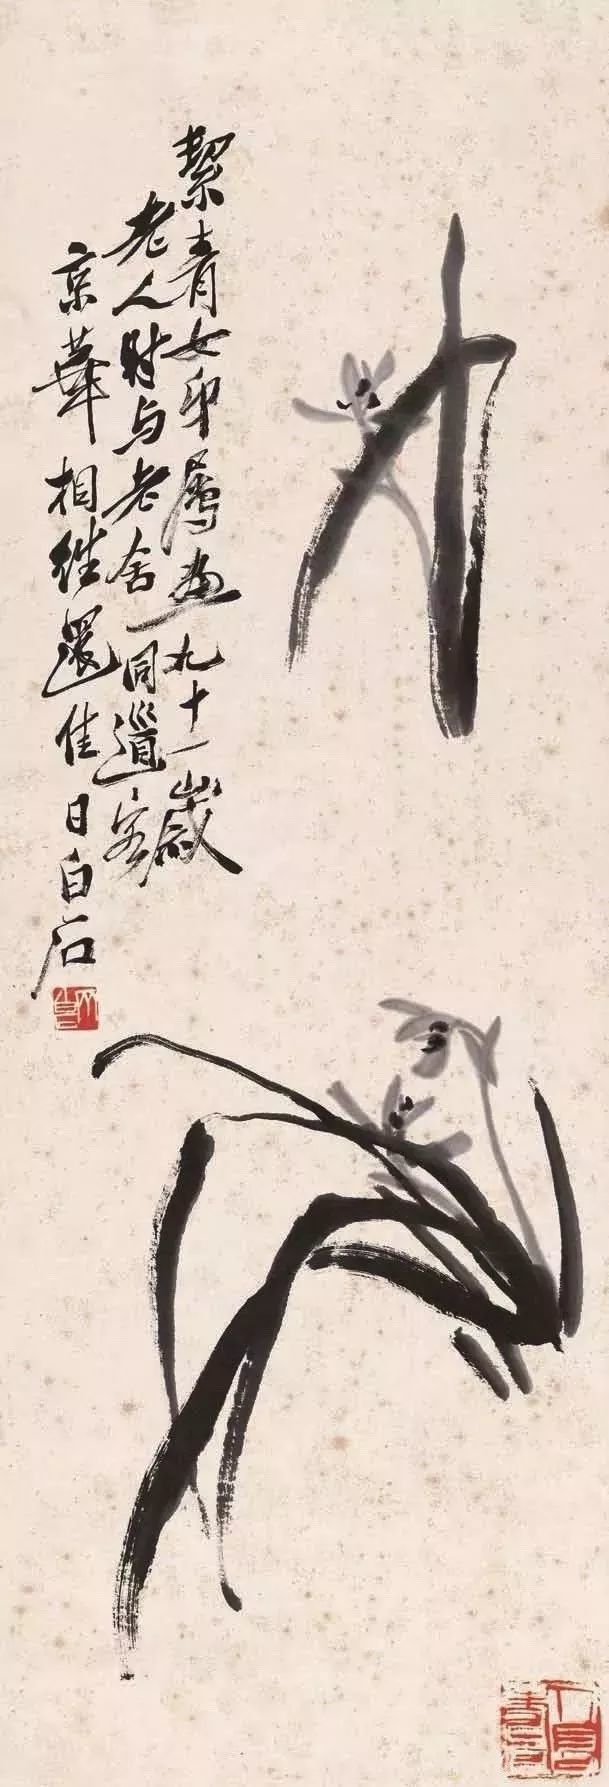 絜青女弟屬畫九十一歲
老人時与老舍同邀客
京華相繼還佳日白石